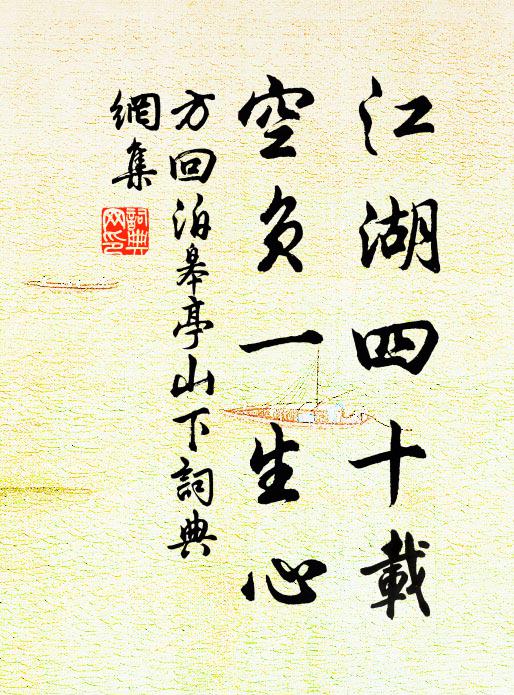 江湖四十載
空負一生心
方回泊皋亭山下詞典
網集
詞典
网印